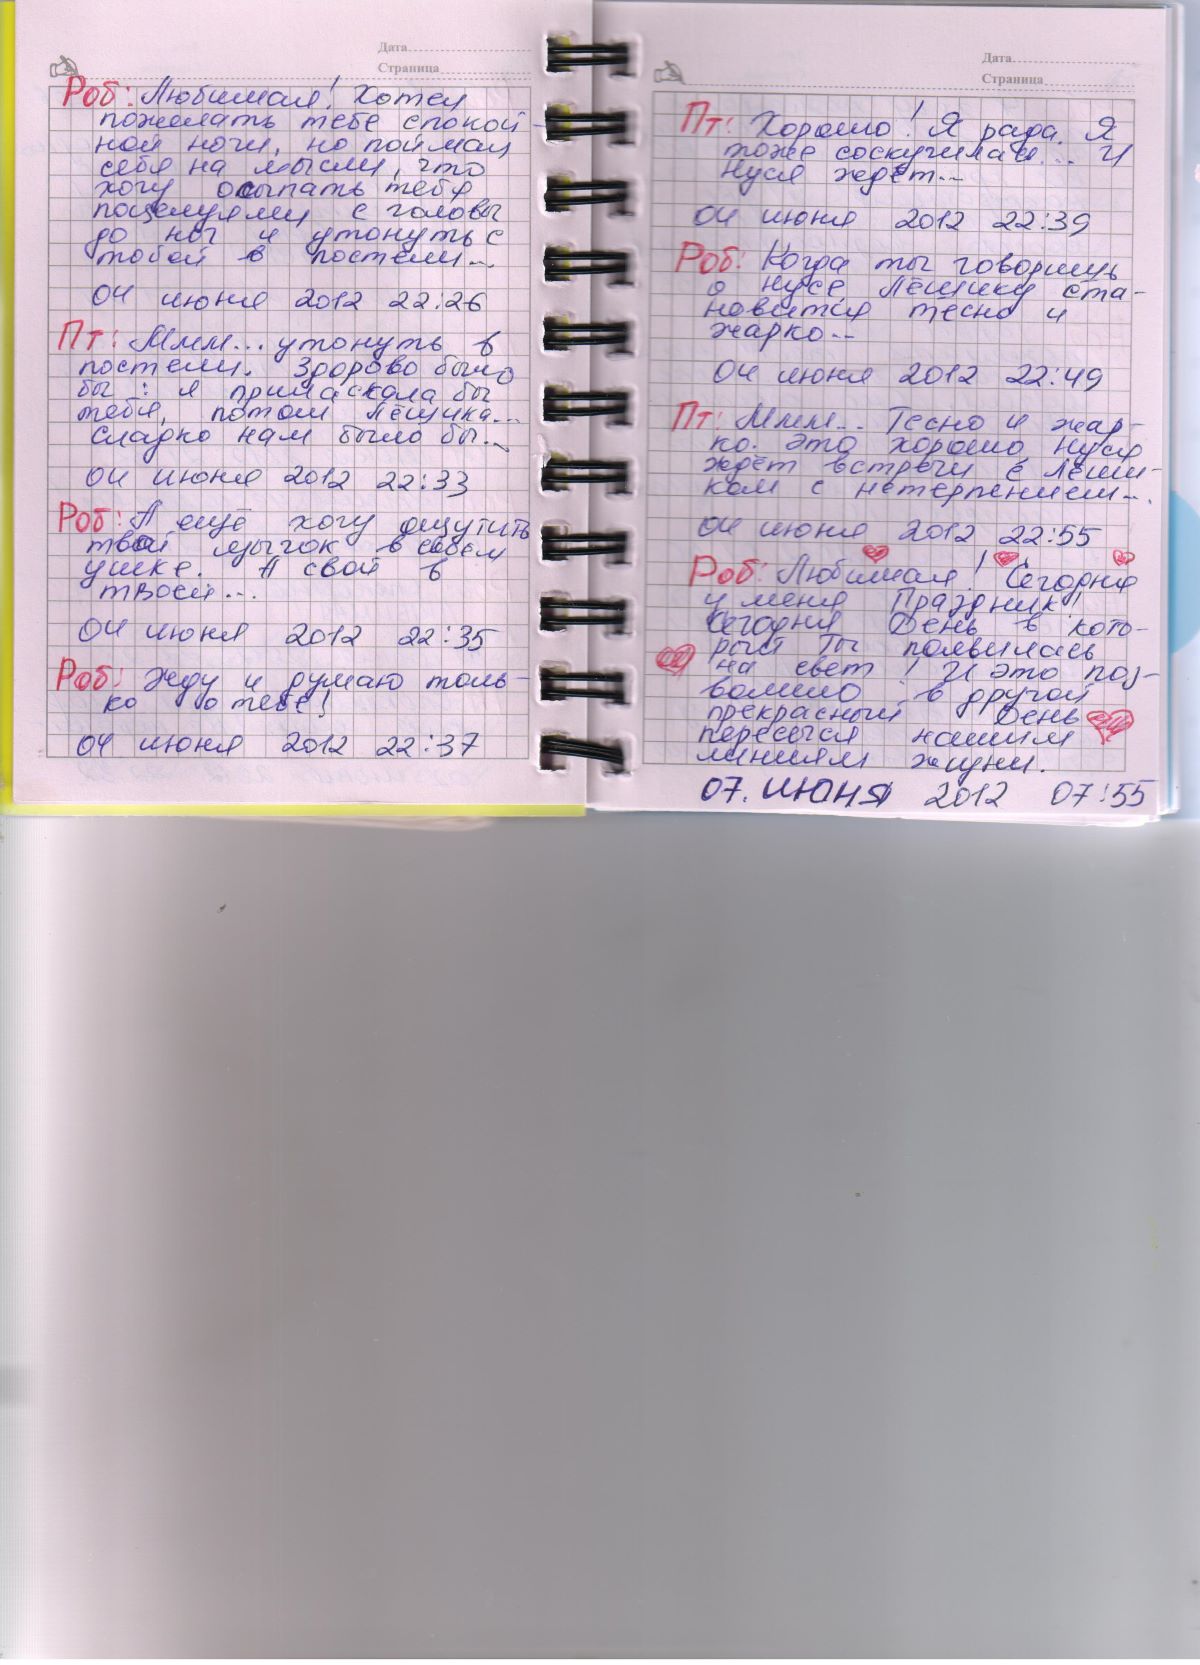 Дата
Страница
Роб: Любимая! Хотел
пожелать тебе спокой-
ной ночи, но поймал
себя на мысли, что
хочу осыпать тебя
поцелуями с головы
до ног и утонуть с
тобой в постели...
04 июня 2012 22:26
Пт: Ммм... утонуть в
постели. Здорово было
бы: я приласкала бы
тебя, потом Лёшика...
Сладко нам было бы...
04 июня 2012 22:33
Роб: А ещё хочу ощутить
твой язычок в своём
ушке. А свой в
твоей...
04 июня 2012 22:35
Роб: Жду и думаю толь-
ко о тебе!
04 июня 2012 22:37
Дата
Страница
Пт: Хорошо! Я рада. Я
тоже соскучилась... И
Нуся ждёт...
04 июня 2012 22:39
Роб: Когда ты говоришь
о Нусе, Лёшику ста-
новится тесно и
жарко...
04 июня 2012 22:49
Пт: Ммм... Тесно и жар-
ко. Это хорошо Нуся
ждёт встречи с Лёши-
ком с нетерпением...
04 июня 2012 22:55
Роб: Любимая! Сегодня
у меня Праздник!
Сегодня День в кото-
рый Ты появилась
на свет! И это поз-
волило в другой
прекрасный День
пересечься нашим
линиям жизни.
07. июня 2012 07:55